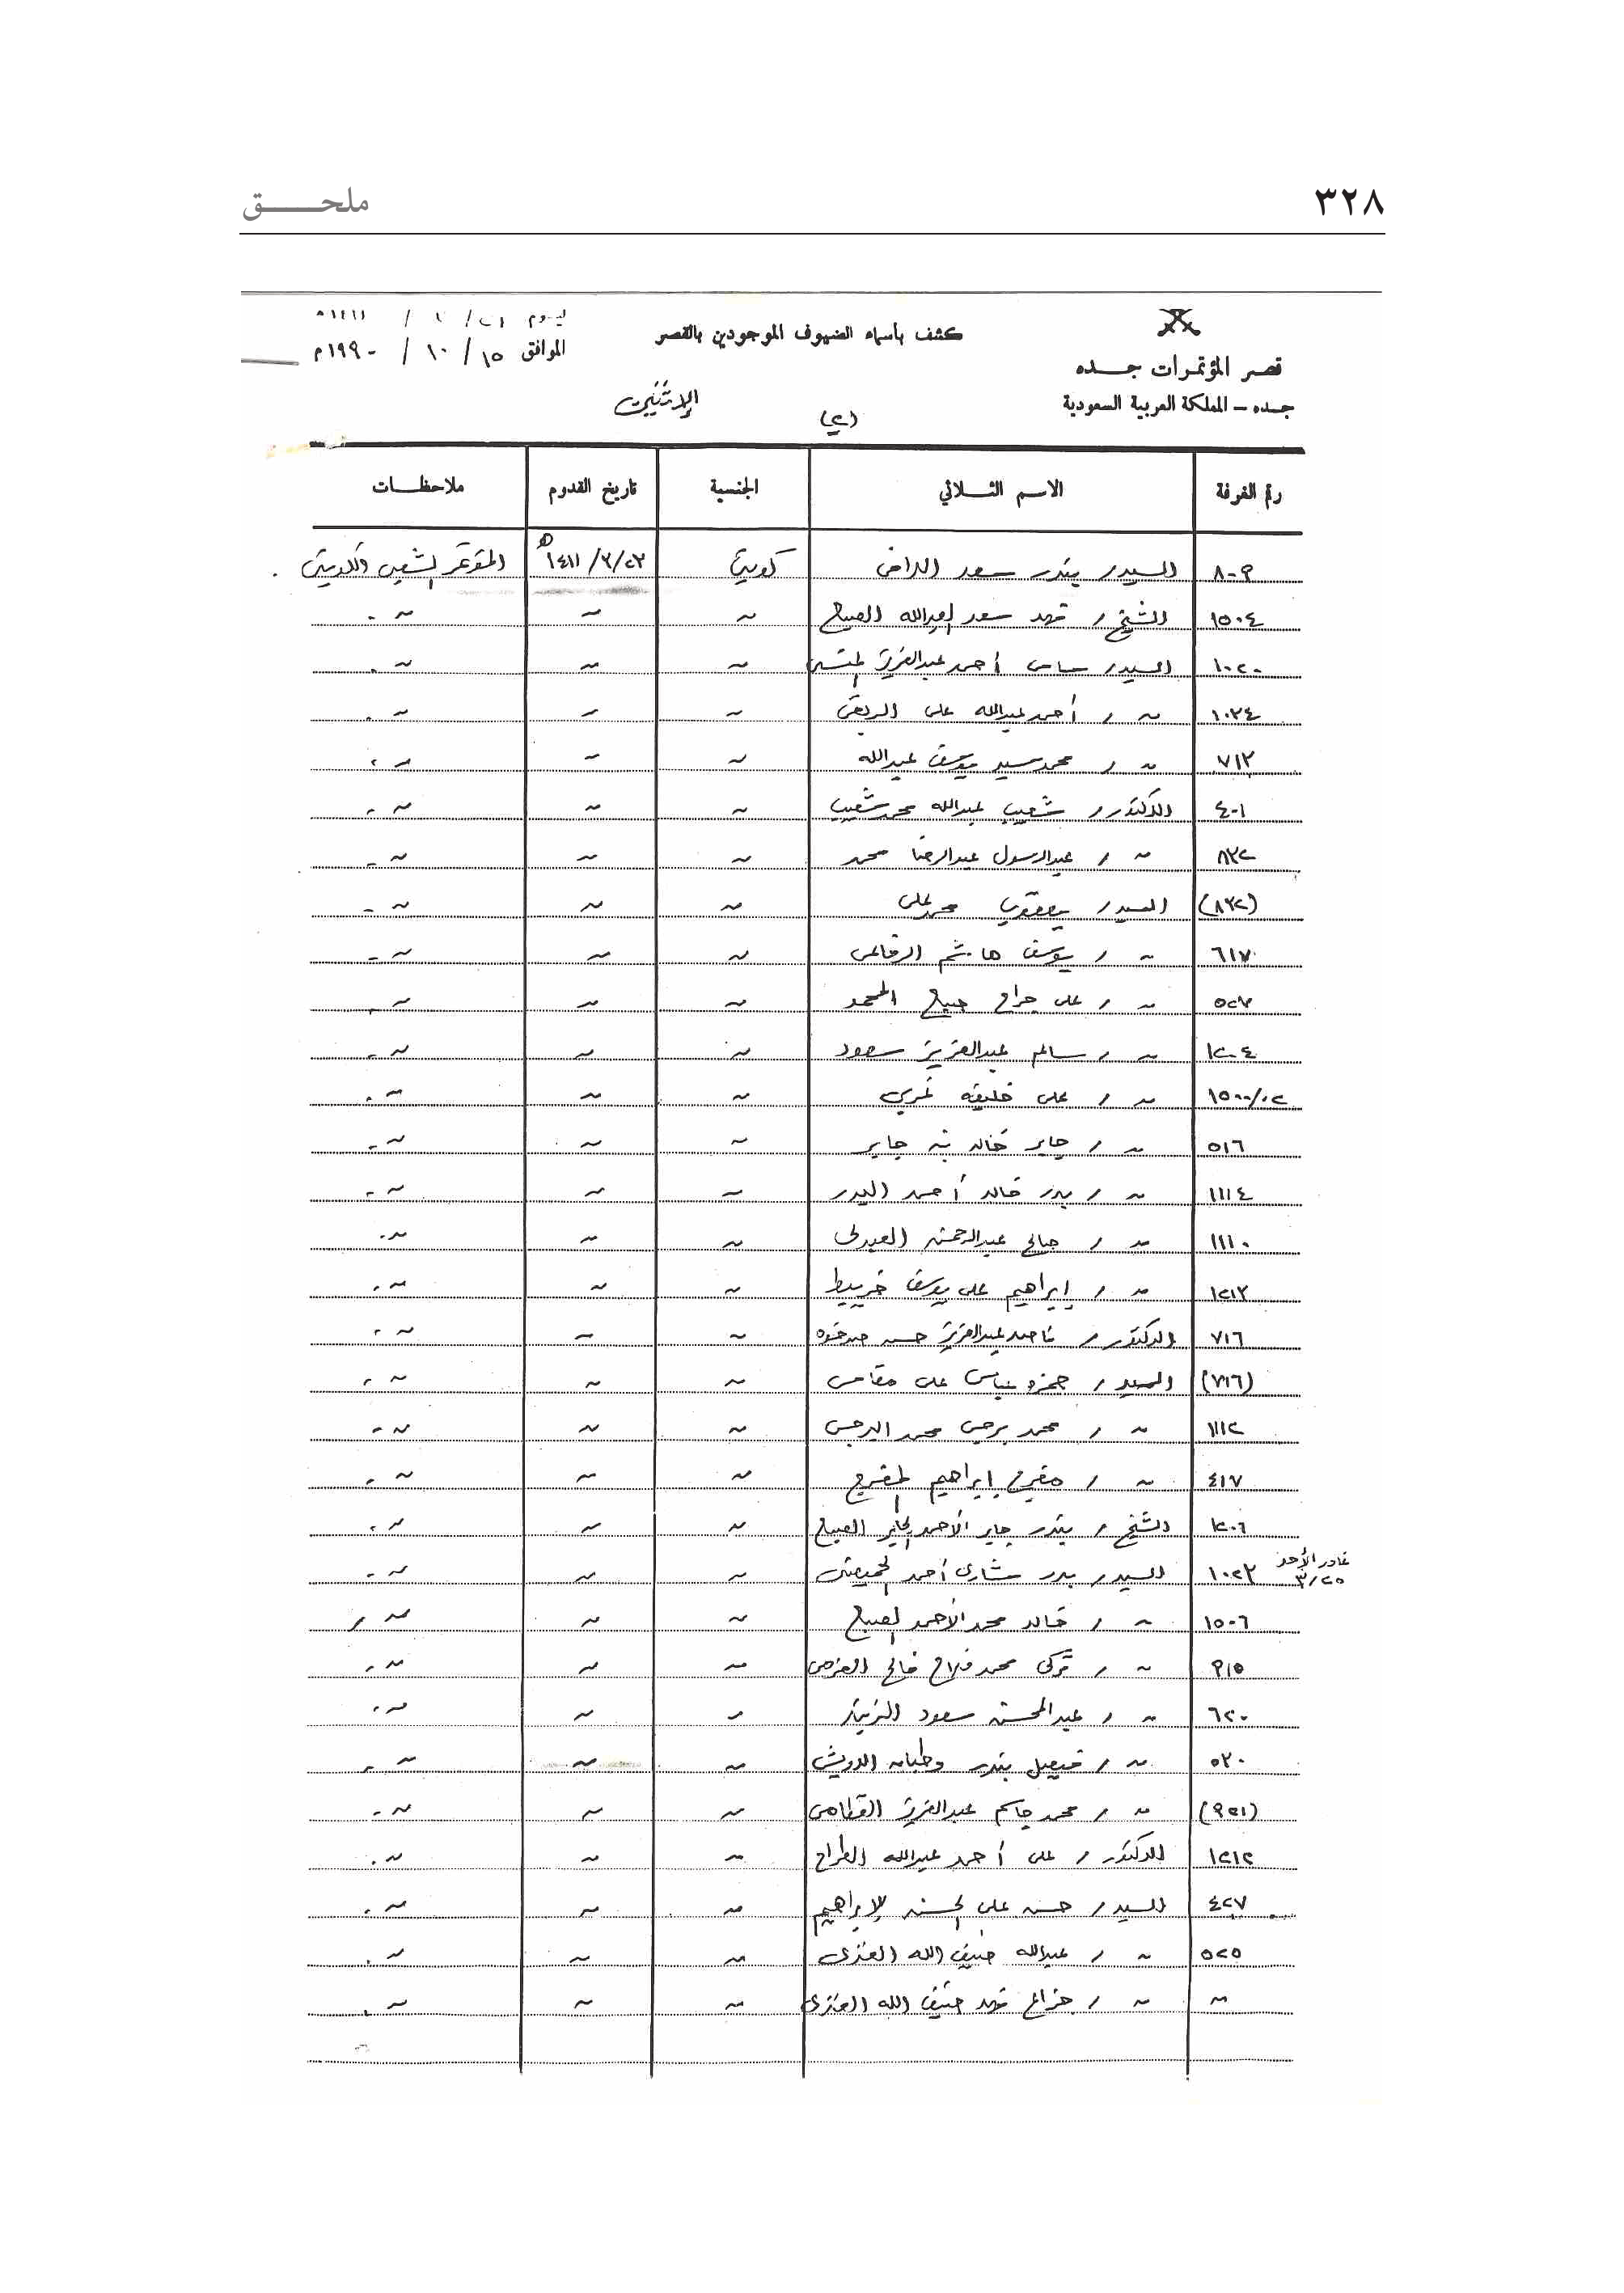 ٣٢٨
ملحـــق
قصر المؤتمرات جـــده
جـده – المملكة العربية السعودية
كشف بأسماء الضيوف الموجودين بالقصر
(٢)
الإثنين
ليوم / / ١٤١١هـ
الموافق ١٥ / ١٠ / ١٩٩٠م
رقم الغرفة الاسم الثـــلاثي الجنسية تاريخ القدوم ملاحظـــات
٨٠٩ السيد / بندر سعد كويتي ٢٣/٣/١٤١١هـ المؤتمر الشعبي الكويتي .
١٥٠٤ الشيخ / فهد سعد العبدالله الصباح ~ ~ ~ .
١٠٢٠ السيد / سامي أحمد عبدالعزيز ~ ~ ~ .
١٠٢٤ ~ / أحمد عبدالله علي ~ ~ ~ .
٧١٣ ~ / محمد سيد يوسف عبدالله ~ ~ ~ .
٤٠١ الدكتور / شعيب عبدالله محمد شعيب ~ ~ ~ .
٨٣٢ ~ / عبدالرسول عبدالرضا محمد ~ ~ ~ .
(٨٣٢) السيد / يعقوب محمد علي ~ ~ ~ .
٦١٧ ~ / يوسف هاشم ~ ~ ~ .
٥٢٧ ~ / علي جراح صباح المحمد ~ ~ ~ .
١٢٠٤ ~ / سالم عبدالعزيز سعود ~ ~ ~ .
١٥٠٠/٠٢ ~ / علي خليفه ~ ~ ~ .
٥١٦ ~ / جابر خالد بن جابر ~ ~ ~ .
١١١٤ ~ / بدر خالد أحمد البدر ~ ~ ~ .
١١١٠ ~ / صالح عبدالرحمن ~ ~ ~ .
١٢١٣ ~ / إبراهيم علي يوسف خريبط ~ ~ ~ .
٧١٦ الدكتور / ناصر عبدالعزيز حسن صرخوه ~ ~ ~ .
(٧١٦) السيد / حمزه عباس علي مقامس ~ ~ ~ .
١١١٢ ~ / محمد برجس محمد البرجس ~ ~ ~ .
٤١٧ ~ / مفرج إبراهيم المفرج ~ ~ ~ .
١٢٠٦ الشيخ / بندر جابر الأحمد الجابر الصباح ~ ~ ~ .
١٠٢٣ السيد / بدر مشاري أحمد الحميضي ~ ~ ~ .
غادر الأحد
٣/٢٥
١٥٠٦ ~ / خالد محمد الأحمد الصباح ~ ~ ~ .
٩١٥ ~ / تركي محمد فلاح فالح ~ ~ ~ .
٦٢٠ ~ / عبدالمحسن سعود الزبن ~ ~ ~ .
٥٢٠ ~ / فيصل بندر وطبان الدويش ~ ~ ~ .
(٩٢١) ~ / محمد جاسم عبدالعزيز القطامي ~ ~ ~ .
١٢١٢ الدكتور / علي أحمد عبدالله الطراح ~ ~ ~ .
٤٢٧ السيد / حسن علي الحسن الإبراهيم ~ ~ ~ .
٥٢٥ ~ / عبدالله ضيف الله العنزي ~ ~ ~ .
~ ~ / هزاع فهد ضيف الله العنزي ~ ~ ~ .